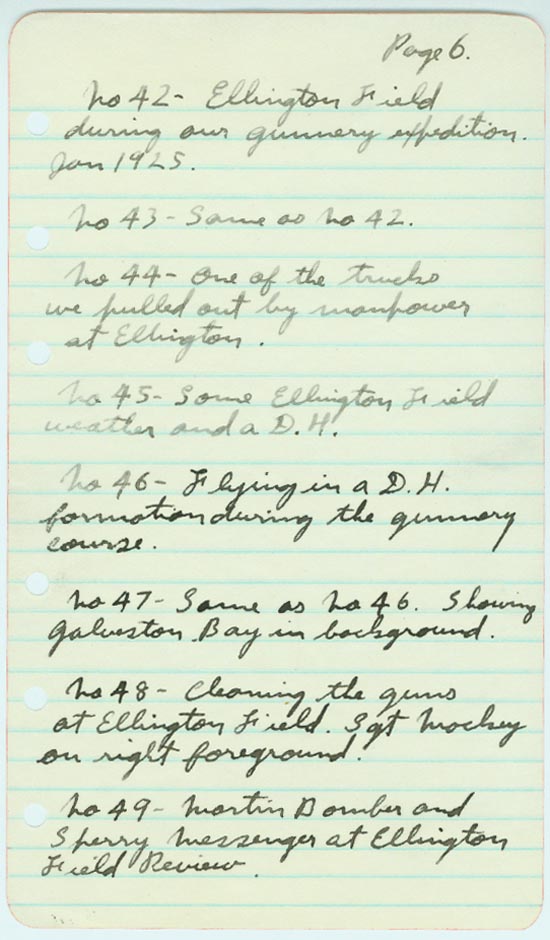 Page 6.
No 42- Ellington Field
during our gunnery expedition.
Jan 1925.
No 43- Same as No 42.
No 44- One of the trucks
we pulled out by manpower
at Ellington.
No 45- Some Ellington Field
weather and a D.H.
No 46- Flying in a D.H.
formation during the gunnery
course.
No 47- Same as No 46. Showing
Galveston Bay in background.
No 48- Cleaning the guns
at Ellington Field. Sgt Mockey
on right foreground.
No 49- Martin Bomber and
Sperry Messenger at Ellington
Field Review.